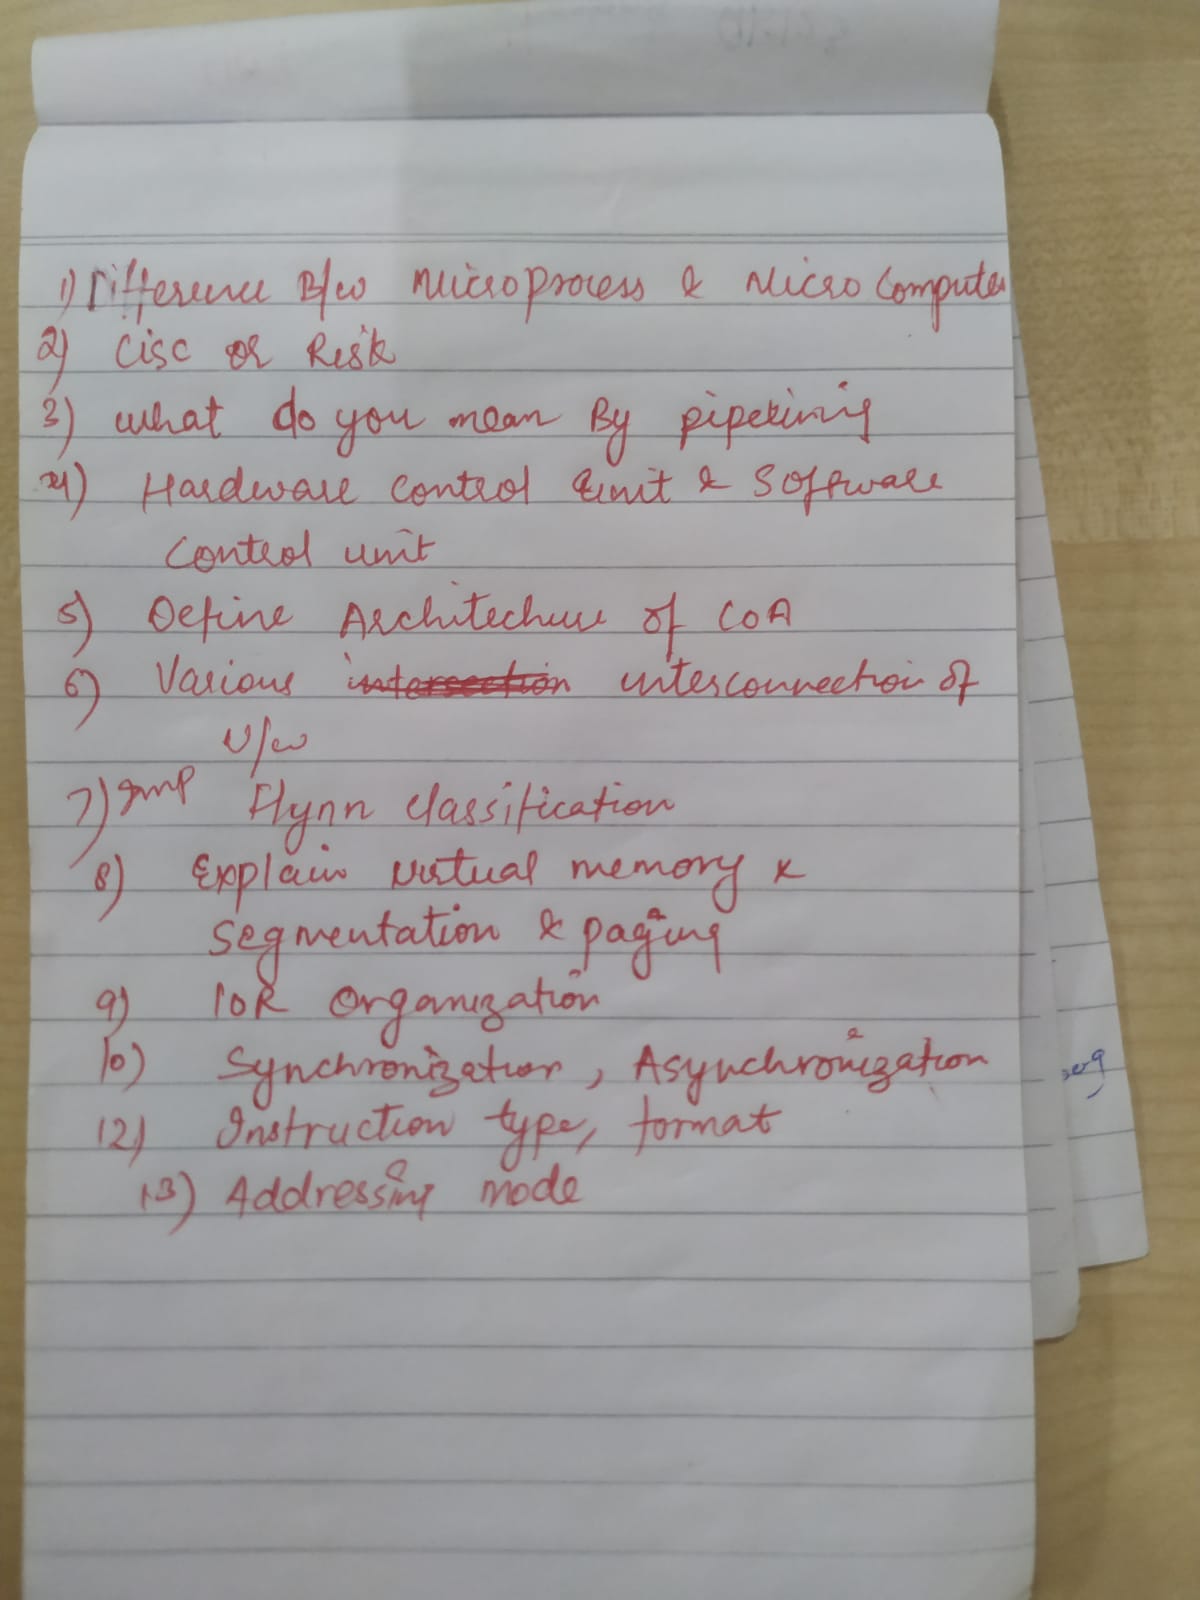 1) Difference B/w Microprocess & Micro Computer
2) Cisc or Risk
3) what do you mean By pipelining
4) Hardware control unit & Software
control unit
5) Define Architechure of COA
6) Various intersection interconnection of
N/w
7) Imp Flynn classification
8) Explain virtual memory &
segmentation & paging
9) IOR Organization
10) Synchronization, Asynchronization
12) Instruction type, format
13) Addressing mode